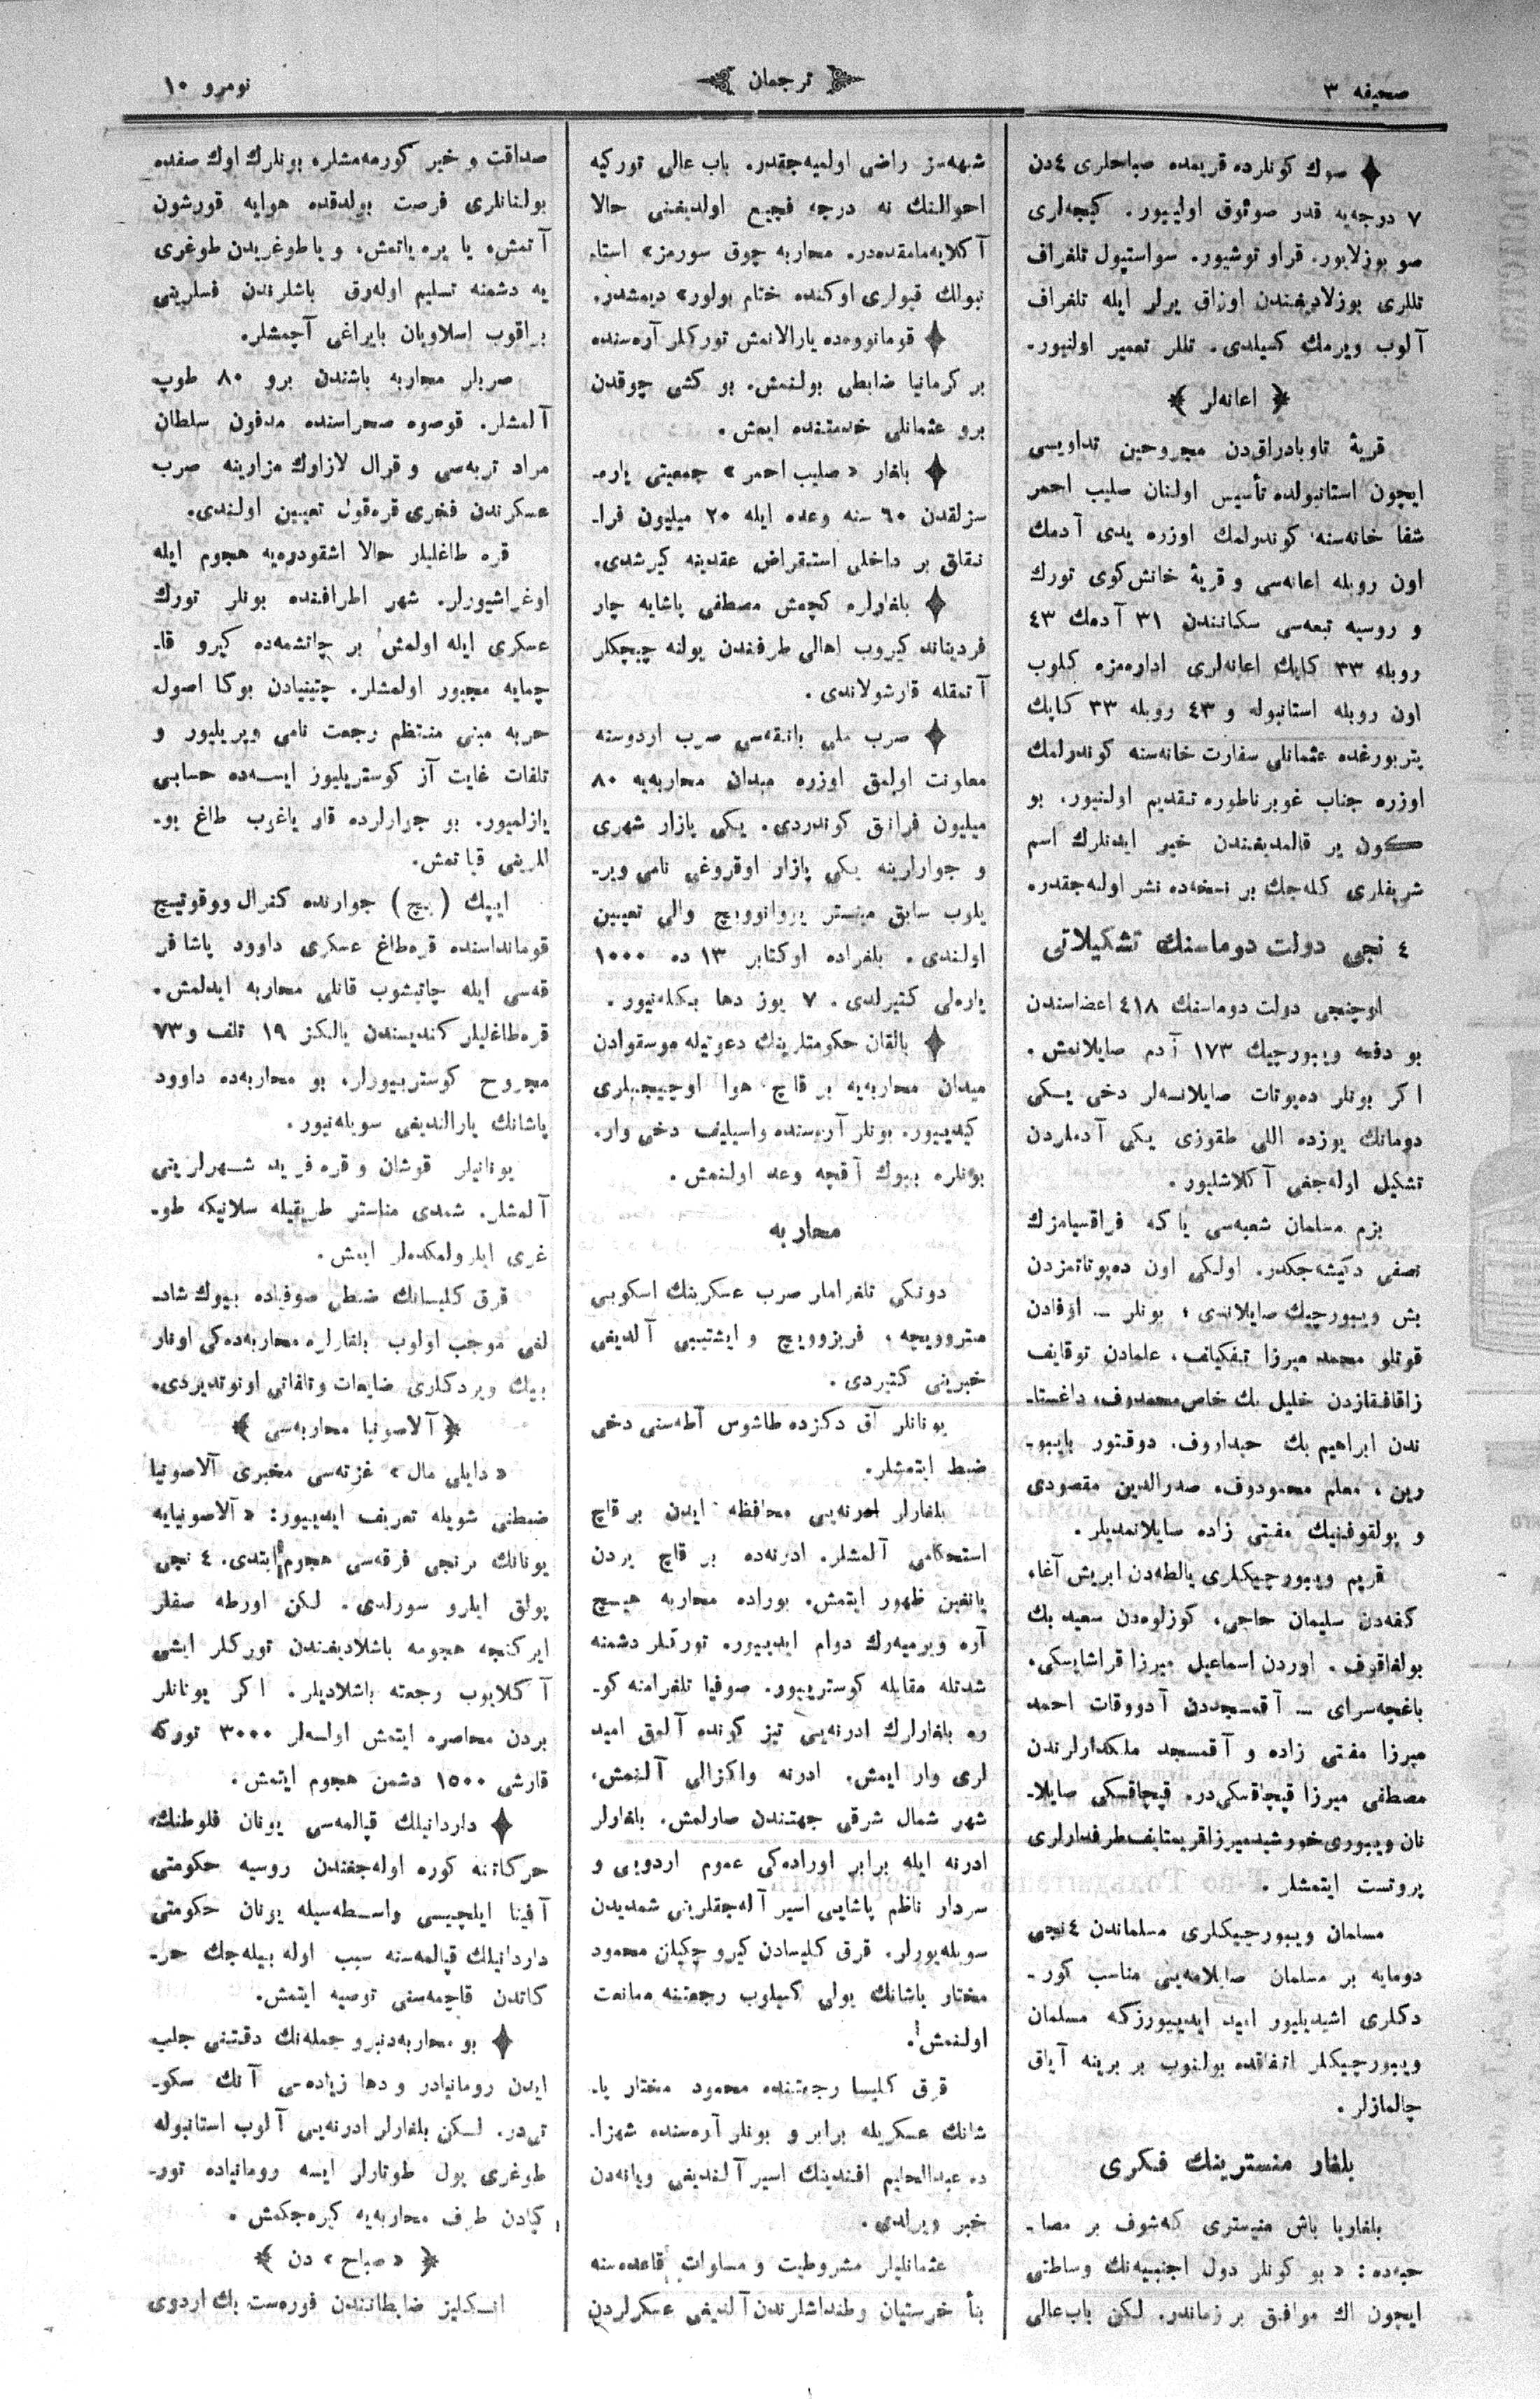 صحیفه ٣
ترجمان
نومرو ١٠
صوك كونلرده قریمده صباحلری ٤ دن
٧ درجه‌یه قدر صوئوق اولیور. كیجه‌لری
صو بوزلایور. قراو توشیور. سواستپول تلغراف
تللری بوزلادیغندن اوزاق یرلر ایله تلغراف
آلوب ویرمك كسیلدی. تللر تعمیر اولنیور.
﴿ اعانه‌لر ﴾
قریهٔ تاوبادراقدن مجروحین تداویسی
ایچون استانبولده تأسیس اولنان صلیب احمر
شفا خانه‌سنه كوندرلمك اوزره یدی آدمك
اون روبله اعانه‌سی و قریهٔ خانش‌كوی تورك
و روسیه تبعه‌سی سكانندن ٣١ آدمك ٤٣
روبله ٣٣ كاپك اعانه‌لری اداره‌مزه كلوب
اون روبله استانبوله و ٤٣ روبله ٣٣ كاپك
پتربورغده عثمانلی سفارت خانه‌سنه كوندرلمك
اوزره جناب غوبرناطوره تقدیم اولنیور. بو
كون یر قالمدیغندن خیر ایدنلرك اسم
شریفلری كله‌جك بر نسخه‌ده نشر اوله‌جقدر.
٤ نجی دولت دوماسنك تشكیلاتی
اوچنجی دولت دوماسنك ٤١٨ اعضاسندن
بو دفعه ویبورچیك ١٧٣ آدم صایلانمش.
اكر بونلر ده‌پوتات صایلانسه‌لر دخی یكی
دومانك یوزده اللی طقوزی یكی آدملردن
تشكیل اوله‌جغی آكلاشلیور.
بزم مسلمان شعبه‌سی یا كه فراقسیامزك
نصفی دكیشه‌جكدر. اولكی اون ده‌پوتاتمزدن
بش ویبورچیك صایلاندی؛ بونلر ــ اوفادن
قوتلو محمد میرزا تفكیلف، علمادن توقایف
زاقافقازدن خلیل بك خاص‌محمدوف، داغستا-
ندن ابراهیم بك حیداروف. دوقتور بایبو-
رین، معلم محمودوف، صدرالدین مقصودی
و پولقوفنیك مفتی زاده صایلانمدیلر.
قریم ویبورچیكلری یالطه‌دن ابریش آغا،
كفه‌دن سلیمان حاجی، كوزلوه‌دن سعید بك
بولغاقوف. اوردن اسماعیل میرزا قراشایسكی،
باغچه‌سرای ــ آقمسجددن آدووقات احمد
میرزا مفتی زاده و آقمسجد ملكدارلرندن
مصطفی میرزا قپچاقسكی‌در. قپچاقسكی صایلا-
نان ویبوری خورشید میرزا قریمتایف طرفدارلری
پروتست ایتمشلر.
مسلمان ویبورجیكلری مسلماندن ٤ نجی
دومایه بر مسلمان صایلامه‌یی مناسب كور-
دكلری اشیدیلیور امید ایدییورزكه مسلمان
ویبورجیكلر اتفاقده بولنوب بر برینه آیاق
چالمازلر.
بلغار منسترینك فكری
بلغاریا باش منیستری كه‌شوف بر مصا-
حبه‌ده: «بو كونلر دول اجنبیه‌نك وساطتی
ایچون اك موافق بر زماندر. لكن باب‌عالی
شبهه‌سز راضی اولمیه‌جقدر. باب عالی توركیه
احوالنك نه درجه فجیع اولدیغنی حالا
آكلایه‌مامقده‌در. محاربه چوق سورمز» استا-
نبولك قپولری اوكنده ختام بولور» دیمشدر.
قومانووه‌ده یارالانمش توركلر آره‌سنده
بر كرمانیا ضابطی بولنمش. بو كشی چوقدن
برو عثمانلی خدمتنده ایمش.
بلغار «صلیب احمر» جمعیتی پاره-
سزلقدن ٦٠ سنه وعده ایله ٢٠ میلیون فرا-
نقلق بر داخلی استقراض عقدینه كیرشدی.
بلغارلره كچمش مصطفی پاشایه چار
فردیناند كیروب اهالی طرفندن یولنه چیچكلر
آتمقله قارشولاندی.
صرب ملی بانقه‌سی صرب اردوسنه
معاونت اولمق اوزره میدان محاربه‌یه ٨٠
میلیون فرانق كوندردی. یكی بازار شهری
و جوارلرینه یكی پازار اوقروغی نامی ویر-
یلوب سابق مینستر یووانوویچ والی تعیین
اولندی. بلغراده اوكتابر ١٣ ده ١٠٠٠
یاره‌لی كتیرلدی. ٧ یوز دها بكله‌نیور.
بالقان حكومتلرینك دعوتیله موسقوادن
میدان محاربه‌یه بر قاچ هوا اوچیجیلری
كیدییور. بونلر آره‌سنده واسیلیف دخی وار.
بونلره بیوك آقچه وعد اولنمش.
محاربه
دونكی تلغرامار صرب عسكرینك اسكوبی
متروویچه، فریزوویچ و ایشتیبی آلدیغی
خبرینی كتیردی.
یونانلر آق دكزده طاشوس آطه‌سنی دخی
ضبط ایتمشلر.
بلغارلر ادرنه‌یی محافظه ایدن بر قاچ
استحكامی آلمشلر. ادرنه‌ده بر قاچ یردن
یانغین ظهور ایتمش. بوراده محاربه هیچ
آره ویرمیه‌رك دوام ایدییور. توركلر دشمنه
شدتله مقابله كوسترییور. صوفیا تلغرامنه كو-
ره بلغارلرك ادرنه‌یی تیز كونده آلمق امید
لری وار ایمش. ادرنه واكزالی آلنمش،
شهر شمال شرقی جهتندن صارلمش. بلغارلر
ادرنه ایله برابر اوراده‌كی عموم اردویی و
سردار ناظم پاشایی اسیر آله‌جقلرینی شمدیدن
سویله‌یورلر. قرق كلیسادن كیرو چكیلن محمود
مختار پاشانك یولی كسیلوب رجعتنه ممانعت
اولنمش.
قرق كلیسا رجعتنده محمود مختار پا-
شانك عسكریله برابر و بونلر آره‌سنده شهزا-
ده عبدالحلیم افندینك اسیر آلندیغی ویانه‌دن
خبر ویرلدی.
عثمانلیلر مشروطیت و مساوات قاعده‌سنه
بنأ خرستیان وطنداشلرندن آلدیغی عسكرلردن
صداقت و خیر كورمه‌مشلر. بونلرك اوك صفده
بولنانلری فرصت بولدقده هوایه قورشون
آتمش، یا یره یاتمش، و یا طوغریدن طوغری
یه دشمنه تسلیم اوله‌رق باشلرندن فسلرینی
براقوب اسلاویان بایراغی آچمشلر.
صربلر محاربه باشندن برو ٨٠ طوپ
آلمشلر. قوصوه صحراسنده مدفون سلطان
مراد تربه‌سی و قرال لازاوك مزارینه صرب
عسكرندن فخری قره‌قول تعیین اولندی.
قره طاغلیلر حالا اشقودره‌یه هجوم ایله
اوغراشیورلر. شهر اطرافنده بونلر تورك
عسكری ایله اولمش بر چاتشمه‌ده كیرو قا-
چمایه مجبور اولمشلر. چتینیادن بوكا اصول
حربه مبنی منتظم رجعت نامی ویریلیور و
تلفات غایت آز كوستریلیوز ایسه‌ده حسابی
یازلمیور. بو جوارلرده قار یاغوب طاغ یو-
للرینی قپاتمش.
ایپك (پچ) جوارنده كنرال ووقوتیچ
قومانداسنده قره‌طاغ عسكری داوود پاشا فر
قه‌سی ایله چاتیشوب قانلی محاربه ایدلمش.
قره‌طاغلیلر كندیسندن یالكز ١٩ تلف و ٧٣
مجروح كوسترییورلر. بو محاربه‌ده داوود
پاشانك یارالندیغی سویله‌نیور.
یونانیلر قوشان و قره فریه شهرلرینی
آلمشلر. شمدی مناستر طریقیله سلانیكه طو-
غری ایلرولمكده‌لر ایمش.
قرق كلیسانك ضبطی صوفیاده بیوك شاد-
لغی موجب اولوب بلغارلره محاربه‌ده‌كی اونلر
بیك ویردكلری ضایعات و تلفاتی اونوتدیردی.
﴿ آلاصونیا محاربه‌سی ﴾
«دایلی مال» غزته‌سی مخبری آلاصونیا
ضبطنی شویله تعریف ایدییور: «آلاصونیایه
یونانك برنجی فرقه‌سی هجوم ایتدی. ٤ نجی
پولق ایلرو سورلدی. لكن اورطه صفلر
ایركنجه هجومه باشلادیغندن توركلر ایشی
آكلایوب رجعته باشلادیلر. اكر یونانلر
بردن محاصره ایتمش اولسه‌لر ٣٠٠٠ توركه
قارشی ١٥٠٠ دشمن هجوم ایتمش.
داردانیلك قپالمه‌سی یونان فلوطنك
حركاتنه كوره اوله‌جغندن روسیه حكومتی
آفینا ایلچیسی واسطه‌سیله یونان حكومتی
داردانیلك قپالمه‌سنه سبب اوله بیله‌جك حر-
كاتدن قاچمه‌سنی توصیه ایتمش.
بو محاربه‌دنبرو جمله‌نك دقتنی جلب
ایدن رومانیادر و دها زیاده‌سی آنك سكو-
تی‌در. لكن بلغارلر ادرنه‌یی آلوب استانبوله
طوغری یول طوتارلر ایسه رومانیاده تور-
كیادن طرف محاربه‌یه كیره‌جكمش.
﴿ «صباح» دن ﴾
انكلیز ضابطانندن فوره‌ست بك اردوی